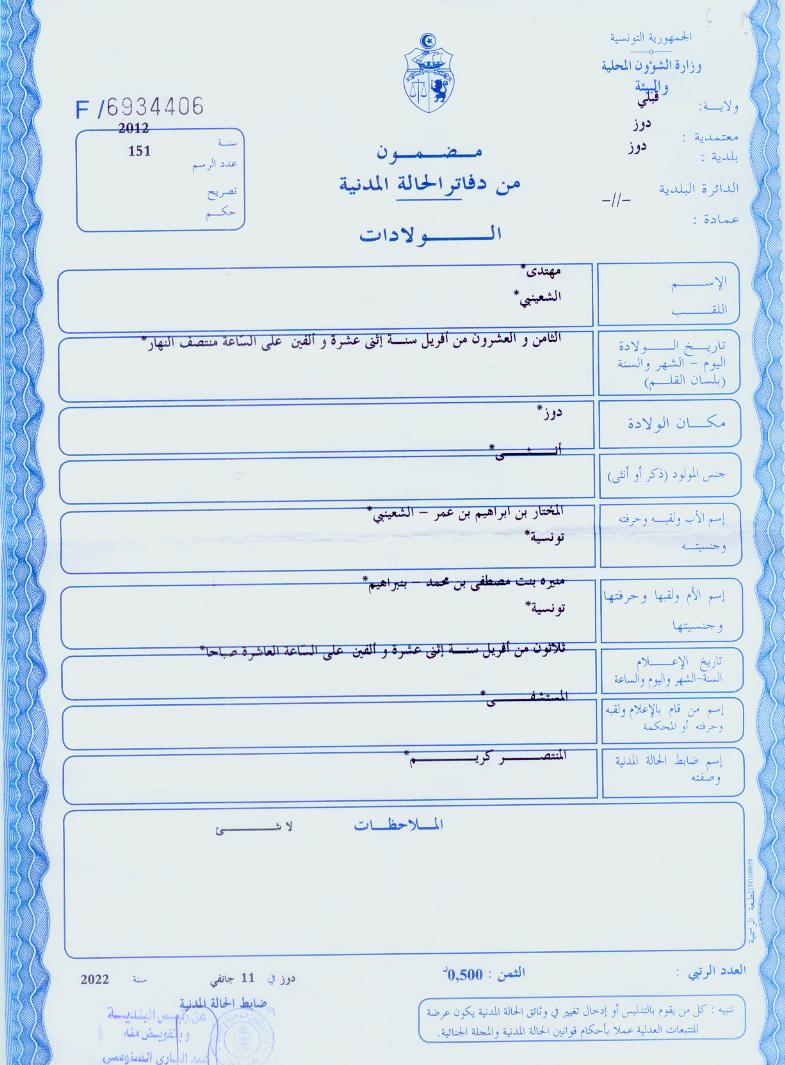 الجمهورية التونسية
وزارة الشؤون المحلية
والبيئة
ولايــة: قبلي
معتمدية : دوز
بلدية : دوز
الدائرة البلدية
عمادة : -//-
F /6934406
سنة 2012
عدد الرسم 151
تصريح
حكم
مـضـمـــون
من دفاتر الحالة المدنية
الـــولادات
الإســـم مهتدى*
اللقـــب الشعينبي*
تاريـــخ الـــولادة الثامن و العشرون من أفريل سنــة إثنى عشرة و ألفين على السّاعة منتصف النهار*
اليوم - الشهر والسنة
(بلسان القلــم)
مكـــان الولادة دوز*
جنس المولود (ذكر أو أنثى) أنـــثـــى*
إسم الأب ولقبــه وحرفته المختار بن ابراهيم بن عمر - الشعينبي*
وجنسيتــه تونسية*
إسم الأم ولقبها وحرفتها منيره بنت مصطفى بن محمد - بنبراهيم*
وجنسيتها تونسية*
تاريخ الإعـــلام ثلاثون من أفريل سنــة إثنى عشرة و ألفين على السّاعة العاشرة صباحا*
السنة-الشهر واليوم والساعة
إسم من قام بالإعلام ولقبه المستشفـــى*
وحرفته أو المحكمة
إسم ضابط الحالة المدنية المنتصـــر كريـــم*
وصفته
المــلاحظــات لا شـــئ
العدد الرتبي :
الثمن : 0,500د
دوز في 11 جانفي سنة 2022
ضابط الحالة المدنية
عن رئيس البلديـة
وبتفويض منه
تنبيه : كل من يقوم بالتدليس أو إدخال تغيير في وثائق الحالة المدنية يكون عرضة
للتتبعات العدلية عملا بأحكام قوانين الحالة المدنية والمجلة الجنائية.